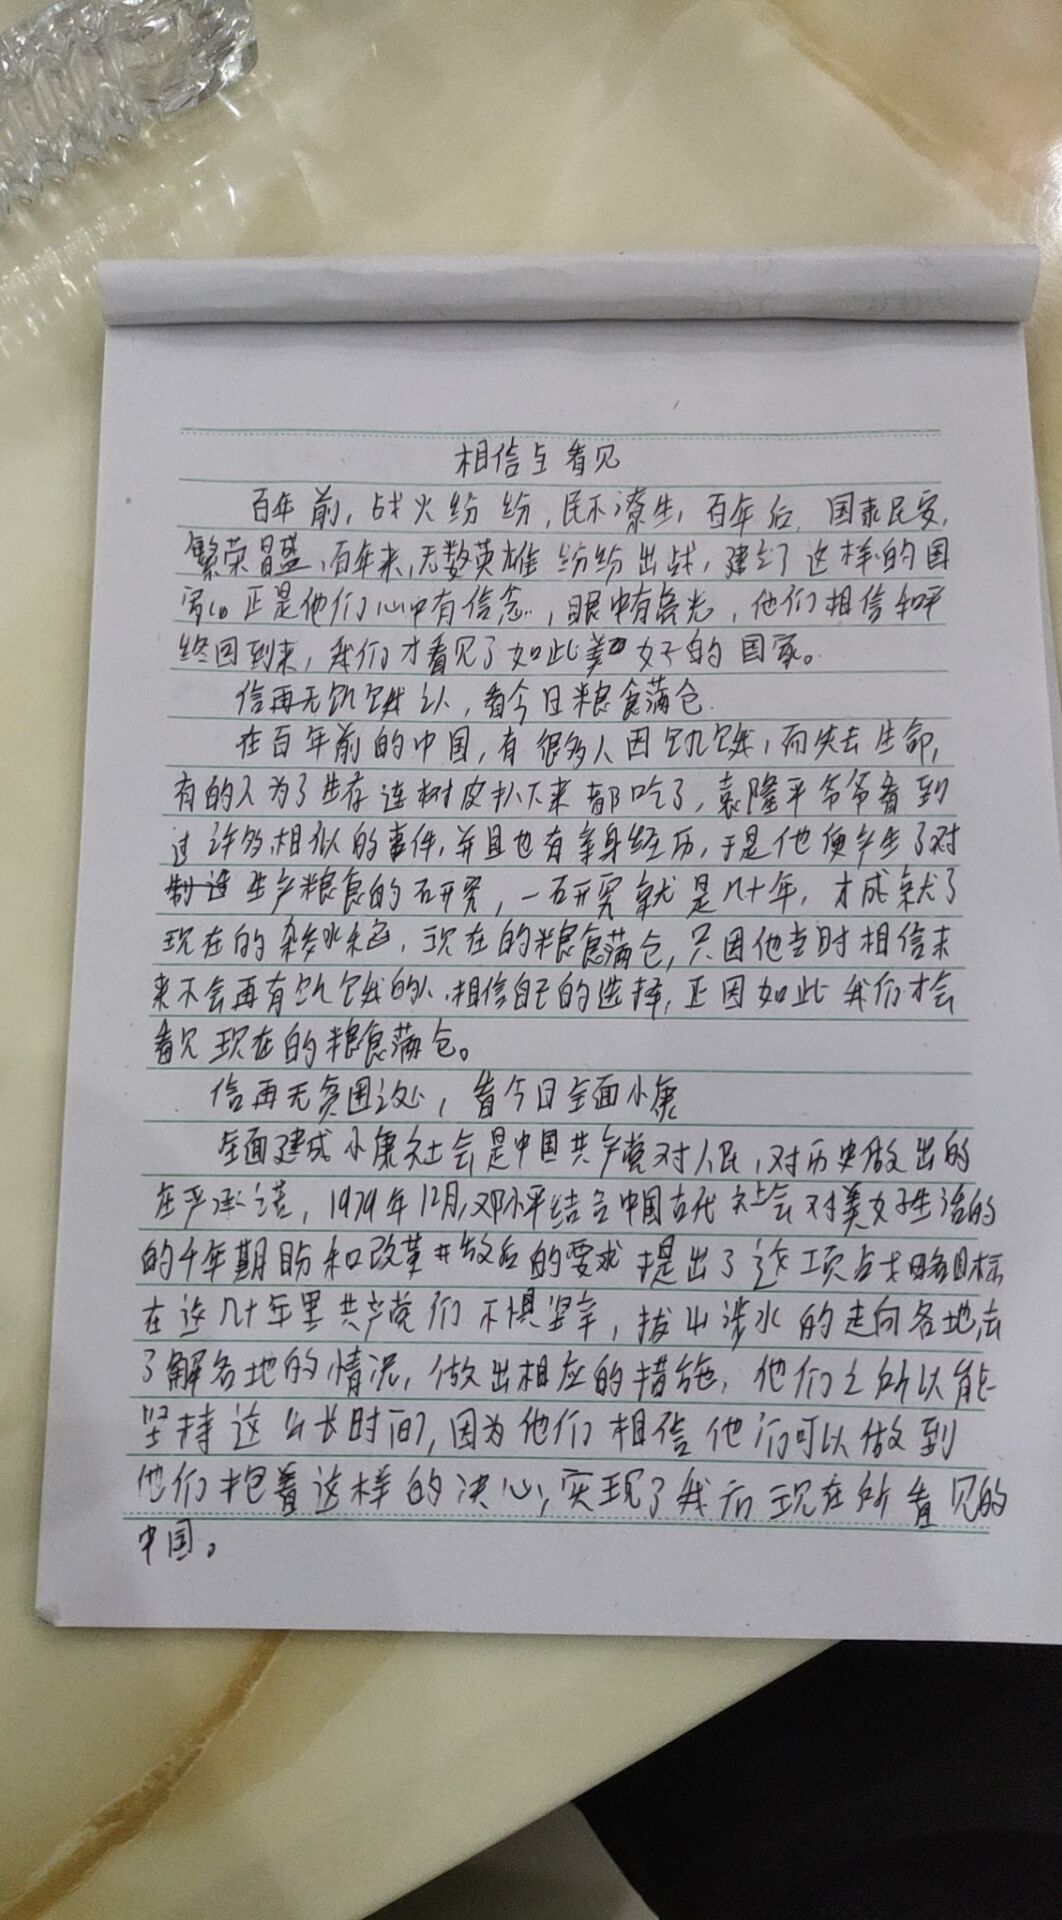 相信与看见
百年前，战火纷纷，民不潦生，百年后，国泰民安，
繁荣昌盛，百年来，无数英雄纷纷出战，建立了这样的国
家。正是他们心中有信念，眼中有亮光，他们相信和平
终回到来，我们才看见了如此美好的国家。
信再无饥饿之人，看今日粮食满仓
在百年前的中国，有很多人因饥饿，而失去生命，
有的人为了生存连树皮扒下来都吃了，袁隆平爷爷看到
过许多相似的事件，并且也有亲身经历，于是他便产生了对
生产粮食的研究，一研究就是几十年，才成就了
现在的杂交水稻，现在的粮食满仓，只因他当时相信未
来不会再有饥饿的人，相信自己的选择，正因如此我们才会
看见现在的粮食满仓。
信再无贫困之处，看今日全面小康
全面建成小康社会是中国共产党对人民，对历史做出的
庄严承诺，1979年12月，邓小平结合中国古代社会对美好生活的
的千年期盼和改革开放后的要求提出了这项战略目标
在这几十年里共产党们不惧坚辛，拔山涉水的走向各地，去
了解各地的情况，做出相应的措施，他们之所以能
坚持这么长时间，因为他们相信他们可以做到
他们抱着这样的决心，实现了我们现在所看见的
中国。